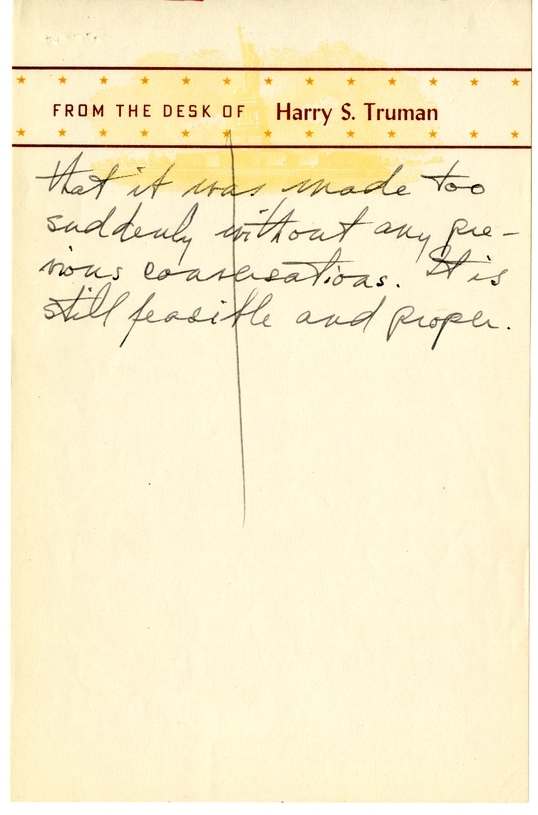 FROM THE DESK OF Harry S. Truman
that it was made too
suddenly without any pre-
vious conversations. It is
still feasible and proper.